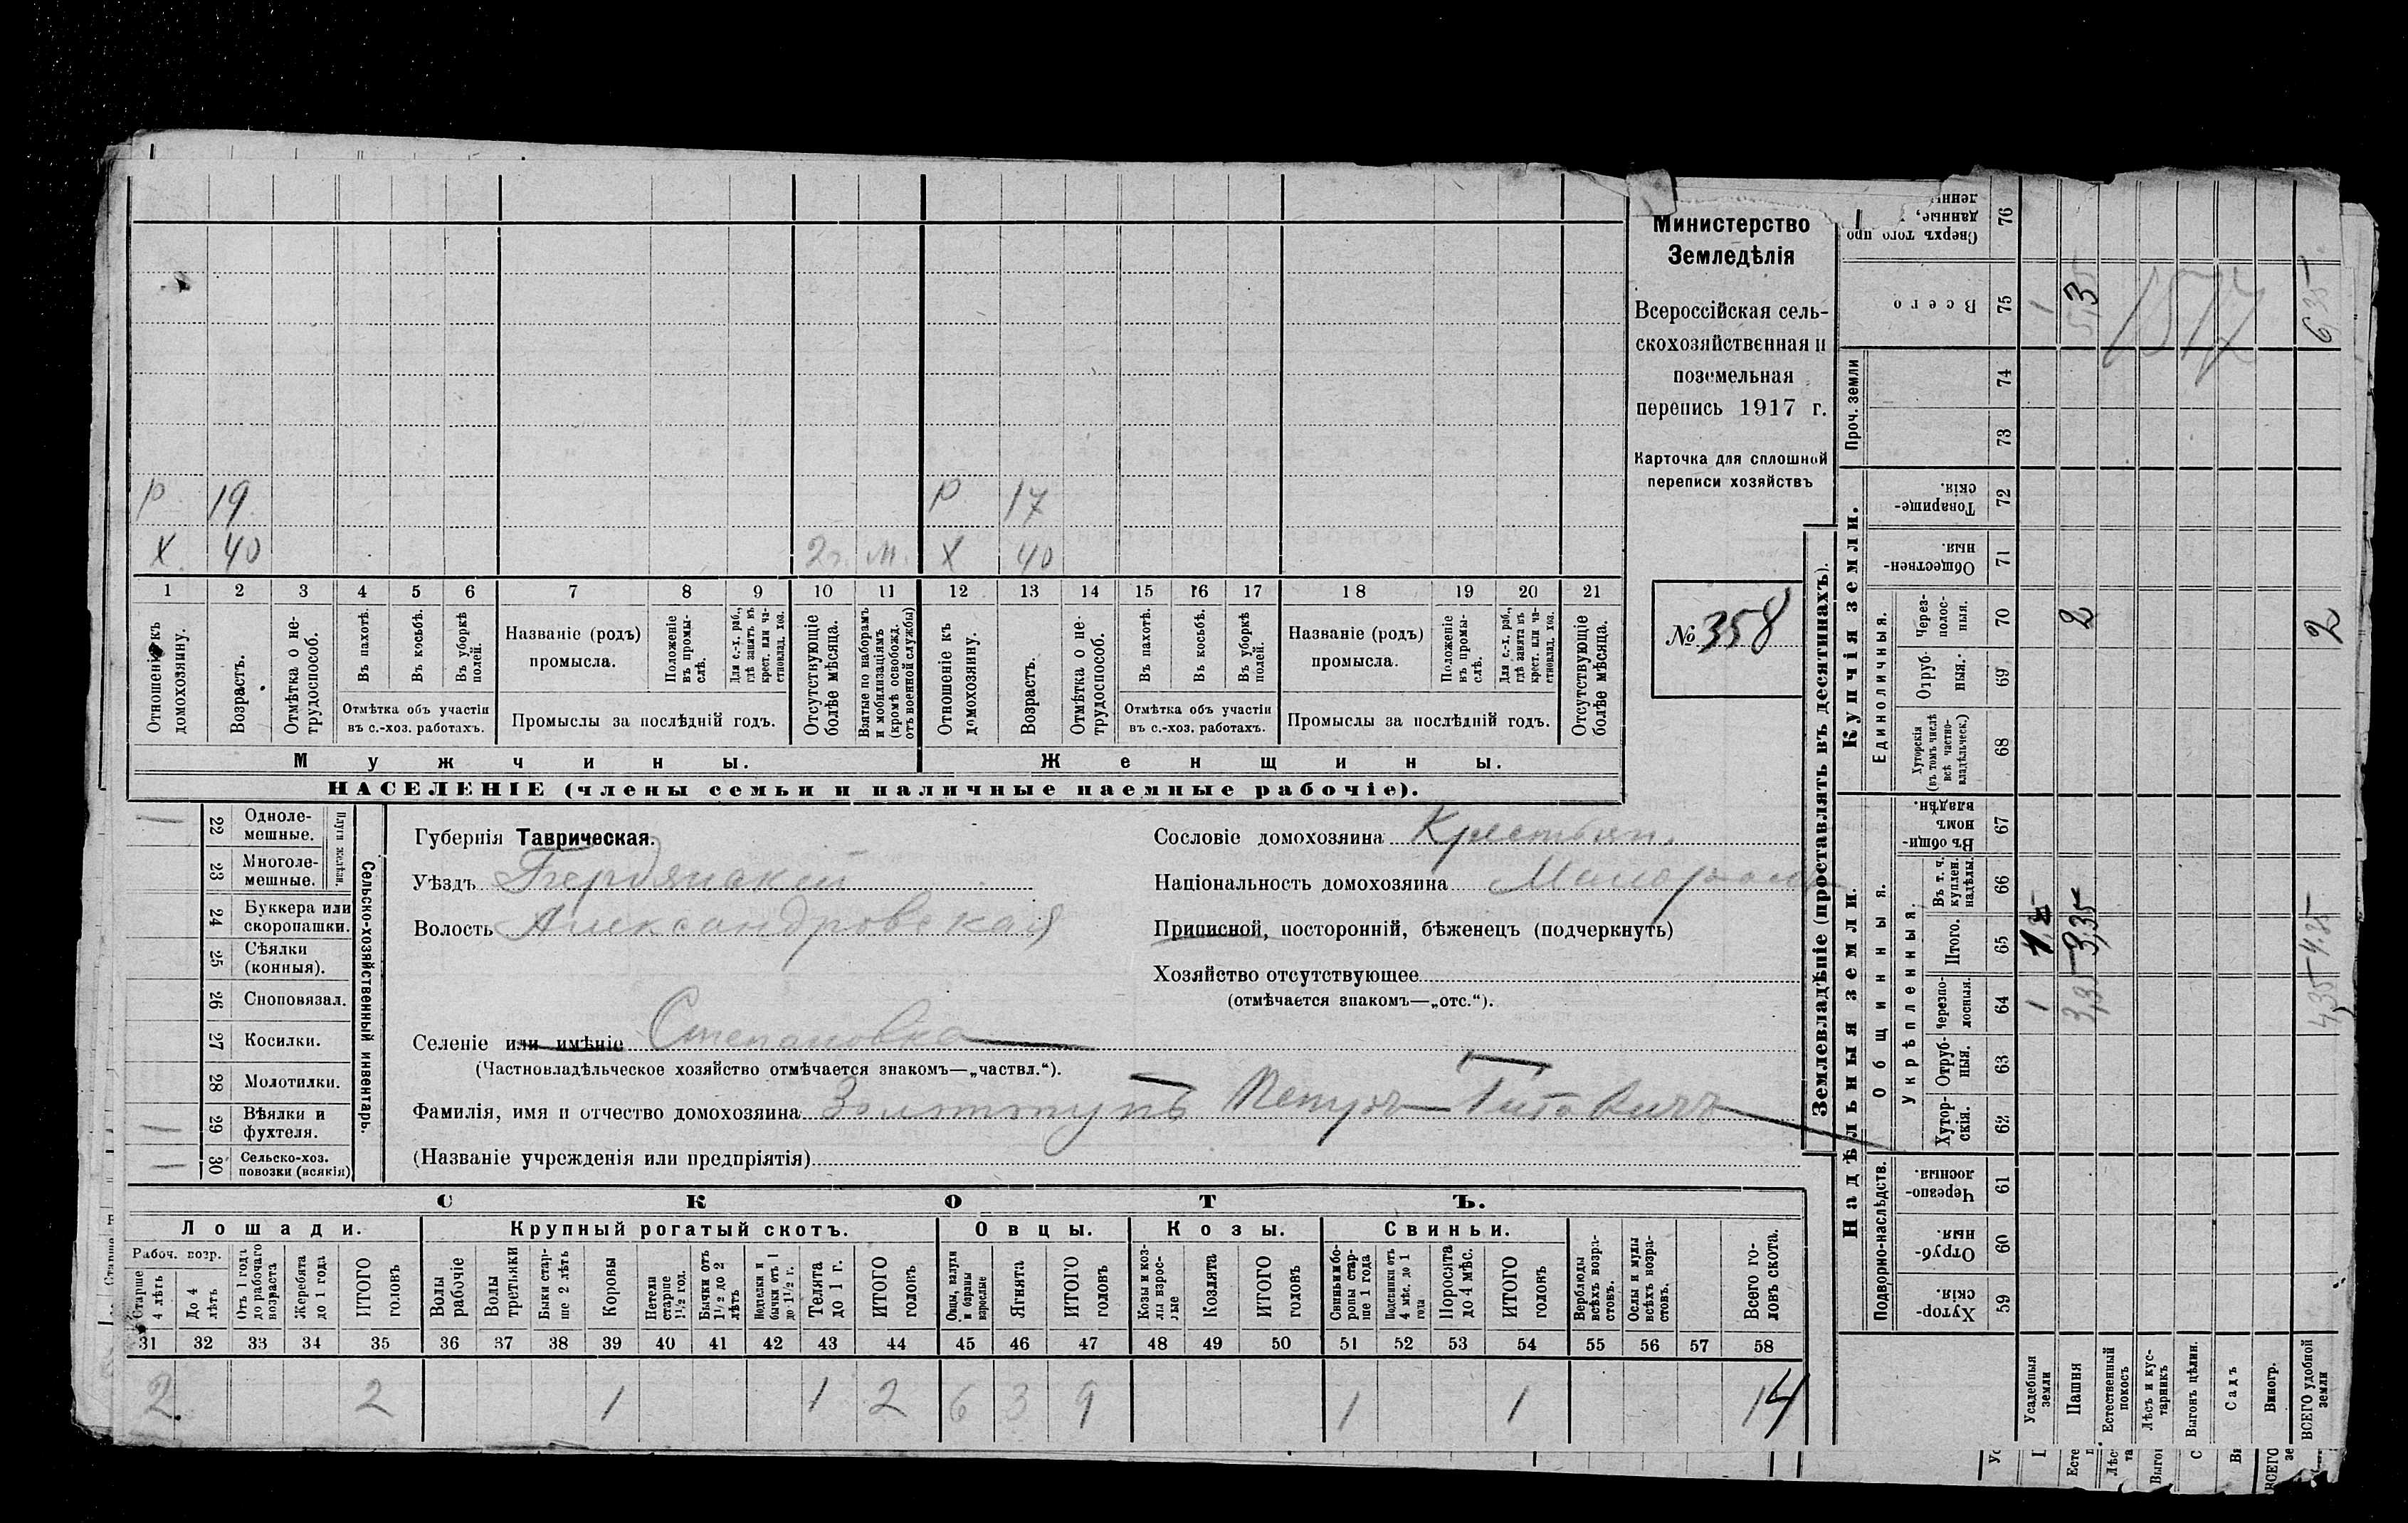 Министерство
Земледѣлія
Всероссійская сель-
скохозяйственная и
поземельная
перепись 1917 г.
Карточка для сплошной
переписи хозяйствъ
№ 358
Р 19 Р 17
Х 40 2г. м. Х 40
1 2 3 4 5 6 7 8 9 10 11 12 13 14 15 16 17 18 19 20 21
Отношеніе къ домохозяину.
Возрастъ.
Отмѣтка о не-трудоспособ.
Въ пахотѣ.
Въ косьбѣ.
Въ уборкѣ полей.
Отмѣтка объ участіи
въ с.-хоз. работахъ.
Названіе (родъ)
промысла.
Положеніе въ промы-слѣ.
Для с.-х. раб., гдѣ занятъ въ крест. или ча-стновлад. хоз.
Промыслы за послѣдній годъ.
Отсутствующіе болѣе мѣсяца.
Взятые по наборамъ и мобилизаціямъ (кромѣ освобожд. отъ военной службы)
Отношеніе къ домохозяину.
Возрастъ.
Отмѣтка о не-трудоспособ.
Въ пахотѣ.
Въ косьбѣ.
Въ уборкѣ полей.
Отмѣтка объ участіи
въ с.-хоз. работахъ.
Названіе (родъ)
промысла.
Положеніе въ промы-слѣ.
Для с.-х. раб., гдѣ занята въ крест. или ча-стновлад. хоз.
Промыслы за послѣдній годъ.
Отсутствующіе болѣе мѣсяца.
Мужчины. Женщины.
НАСЕЛЕНІЕ (члены семьи и наличные наемные рабочіе).
22 Одноле-мешные.
23 Многоле-мешные.
Плуги желѣзн.
24 Буккера или скоропашки.
25 Сѣялки (конныя).
26 Сноповязал.
27 Косилки.
28 Молотилки.
29 Вѣялки и фухтеля.
30 Сельско-хоз. повозки (всякія)
Сельско-хозяйственный инвентарь.
Губернія Таврическая.
Уѣздъ Бердянскій
Волость Александровская
Селеніе или имѣніе Степановка
(Частновладѣльческое хозяйство отмѣчается знакомъ—„частвл.“).
Фамилія, имя и отчество домохозяина Петръ Титовичъ
(Названіе учрежденія или предпріятія)
Сословіе домохозяина Крестьян.
Національность домохозяина Малоросс
Приписной, посторонній, бѣженецъ (подчеркнуть)
Хозяйство отсутствующее
(отмѣчается знакомъ—„отс.“).
СКОТЪ.
Лошади. Крупный рогатый скотъ. Овцы. Козы. Свиньи.
Рабоч. возр.
Старше 4 лѣтъ
До 4 лѣтъ
Отъ 1 года до рабочаго возраста
Жеребята до 1 года
ИТОГО головъ
Волы рабочіе
Волы третьяки
Быки стар-ше 2 лѣтъ
Коровы
Нетели старше 1½ год.
Бычки отъ 1½ до 2 лѣтъ
Подтелки и бычки отъ 1 до 1½ г.
Телята до 1 г.
ИТОГО головъ
Овцы, валухи и бараны взрослые
Ягнята
ИТОГО головъ
Козы и коз-лы взрос-лые
Козлята
ИТОГО головъ
Свиньи и бо-ровы стар-ше 1 года
Подсвинки отъ 4 мѣс. до 1 года
Поросята до 4 мѣс.
ИТОГО головъ
Верблюды всѣхъ возра-стовъ.
Ослы и мулы всѣхъ возра-стовъ.
Всего го-ловъ скота.
31 32 33 34 35 36 37 38 39 40 41 42 43 44 45 46 47 48 49 50 51 52 53 54 55 56 57 58
2 2 1 1 2 6 3 9 1 1 14
Землевладѣніе (проставлять въ десятинахъ).
Надѣльныя земли. Купчія земли.
Проч. земли
Подворно-наслѣдств.
Общинныя.
Укрѣпленныя.
Единоличныя.
Хутор-скія. 59
Отруб-ныя. 60
Черезпо-лосныя 61
Хутор-скія. 62
Отруб-ныя. 63
Черезпо-лосныя. 64
Итого. 65
Въ т. ч. куплен. надѣлы. 66
Въ общи-номъ владѣн. 67
Хуторскія (въ томъ числѣ всѣ частно-владѣльческ.) 68
Отруб-ныя. 69
Через-полос-ныя. 70
Обществен-ныя. 71
Товарище-скія. 72
73
74
Всего 75
Сверхъ того про
данные, 76
Усадебныя земли 1 1 1
Пашня 3,35 3,35 2 5,35
Естественный покосъ
Лѣсъ и кус-тарникъ
Выгонъ цѣлин.
Садъ
Виногр.
ВСЕГО удобной земли 4,35 4,35 2 6,35